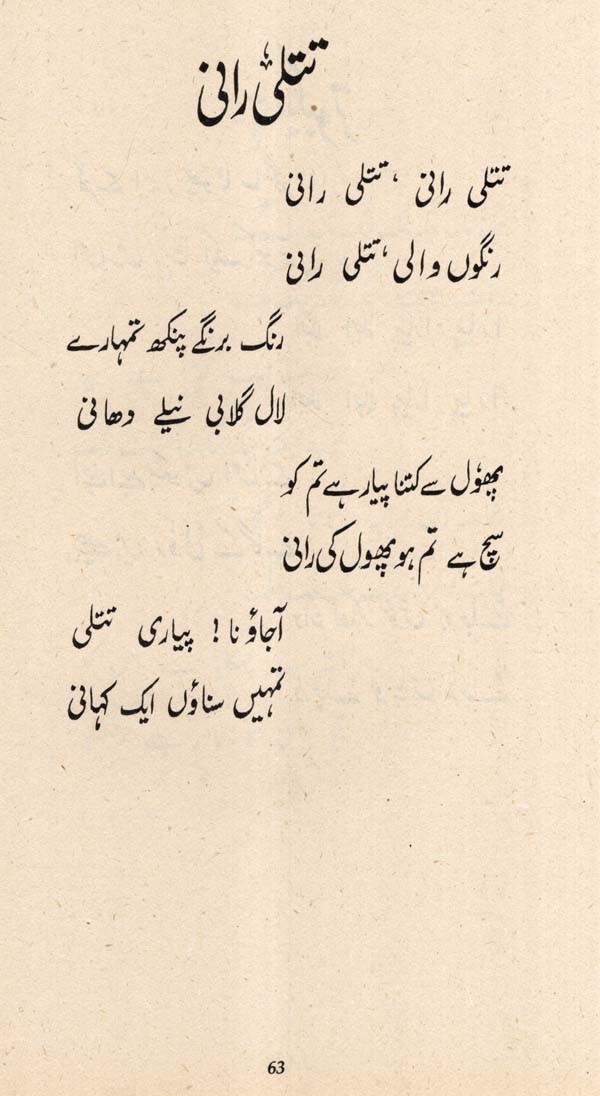 تتلی رانی
تتلی رانی، تتلی رانی
رنگوں والی، تتلی رانی
رنگ برنگے پنکھ تمہارے
لال گلابی نیلے دھانی
پھول سے کتنا پیار ہے تم کو
سچ ہے تم ہو پھول کی رانی
آجاؤ نا! پیاری تتلی
تمہیں سناؤں ایک کہانی
63